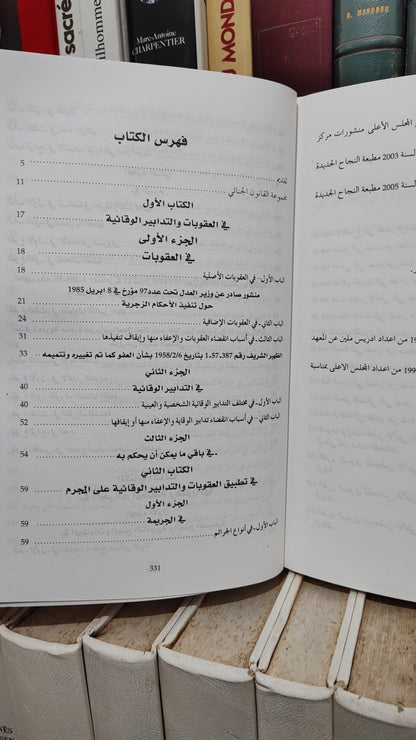 sacré
lhomme
Marc-Antoine
CHARPENTIER
MOND
R. MANDROU
فهرس الكتاب
تقديم 5
مجموعة القانون الجنائي 11
الكتاب الأول
في العقوبات والتدابير الوقائية 17
الجزء الأولى
في العقوبات 18
الباب الأول- في العقوبات الأصلية 18
منشور صادر عن وزير العدل تحت عدد97 مؤرخ في 8 ابريل 1985
حول تنفيذ الأحكام الزجرية 21
الباب الثاني- في العقوبات الإضافية 24
الباب الثالث- في أسباب انقضاء العقوبات والإعفاء منها وإيقاف تنفيذها 32
الظهير الشريف رقم 387-57-1 بتاريخ 1958/2/6 بشأن العفو كما تم تغييره وتتميمه 33
الجزء الثاني
في التدابير الوقائية 40
الباب الأول- في مختلف التدابير الوقائية الشخصية والعينية 40
الباب الثاني- في أسباب انقضاء تدابير الوقاية والإعفاء منها أو إيقافها 52
الجزء الثالث
في باقي ما يمكن أن يحكم به 54
الكتاب الثاني
في تطبيق العقوبات والتدابير الوقائية على المجرم 59
الجزء الأول
في الجريمة 59
الباب الأول- في أنواع الجرائم 59
331
المجلس الأعلى منشورات مركز
لسنة 2003 مطبعة النجاح الجديدة
لسنة 2005 مطبعة النجاح الجديدة
من اعداد ادريس ملين عن المعهد
من اعداد المجلس الاعلى بمناسبة